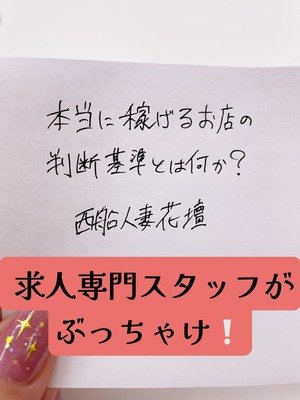 本当に稼げるお店の
判断基準とは何か?
西船人妻花壇
求人専門スタッフが
ぶっちゃけ❕